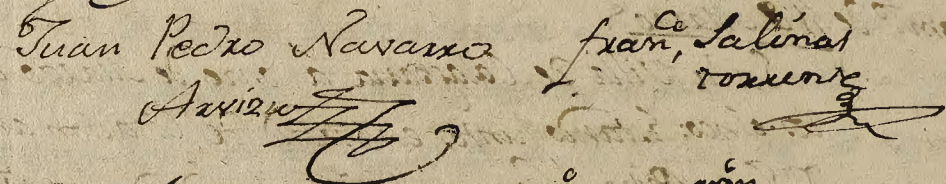 Juan Pedro Navarro
Arrizu
fran.co Salinas
torrente